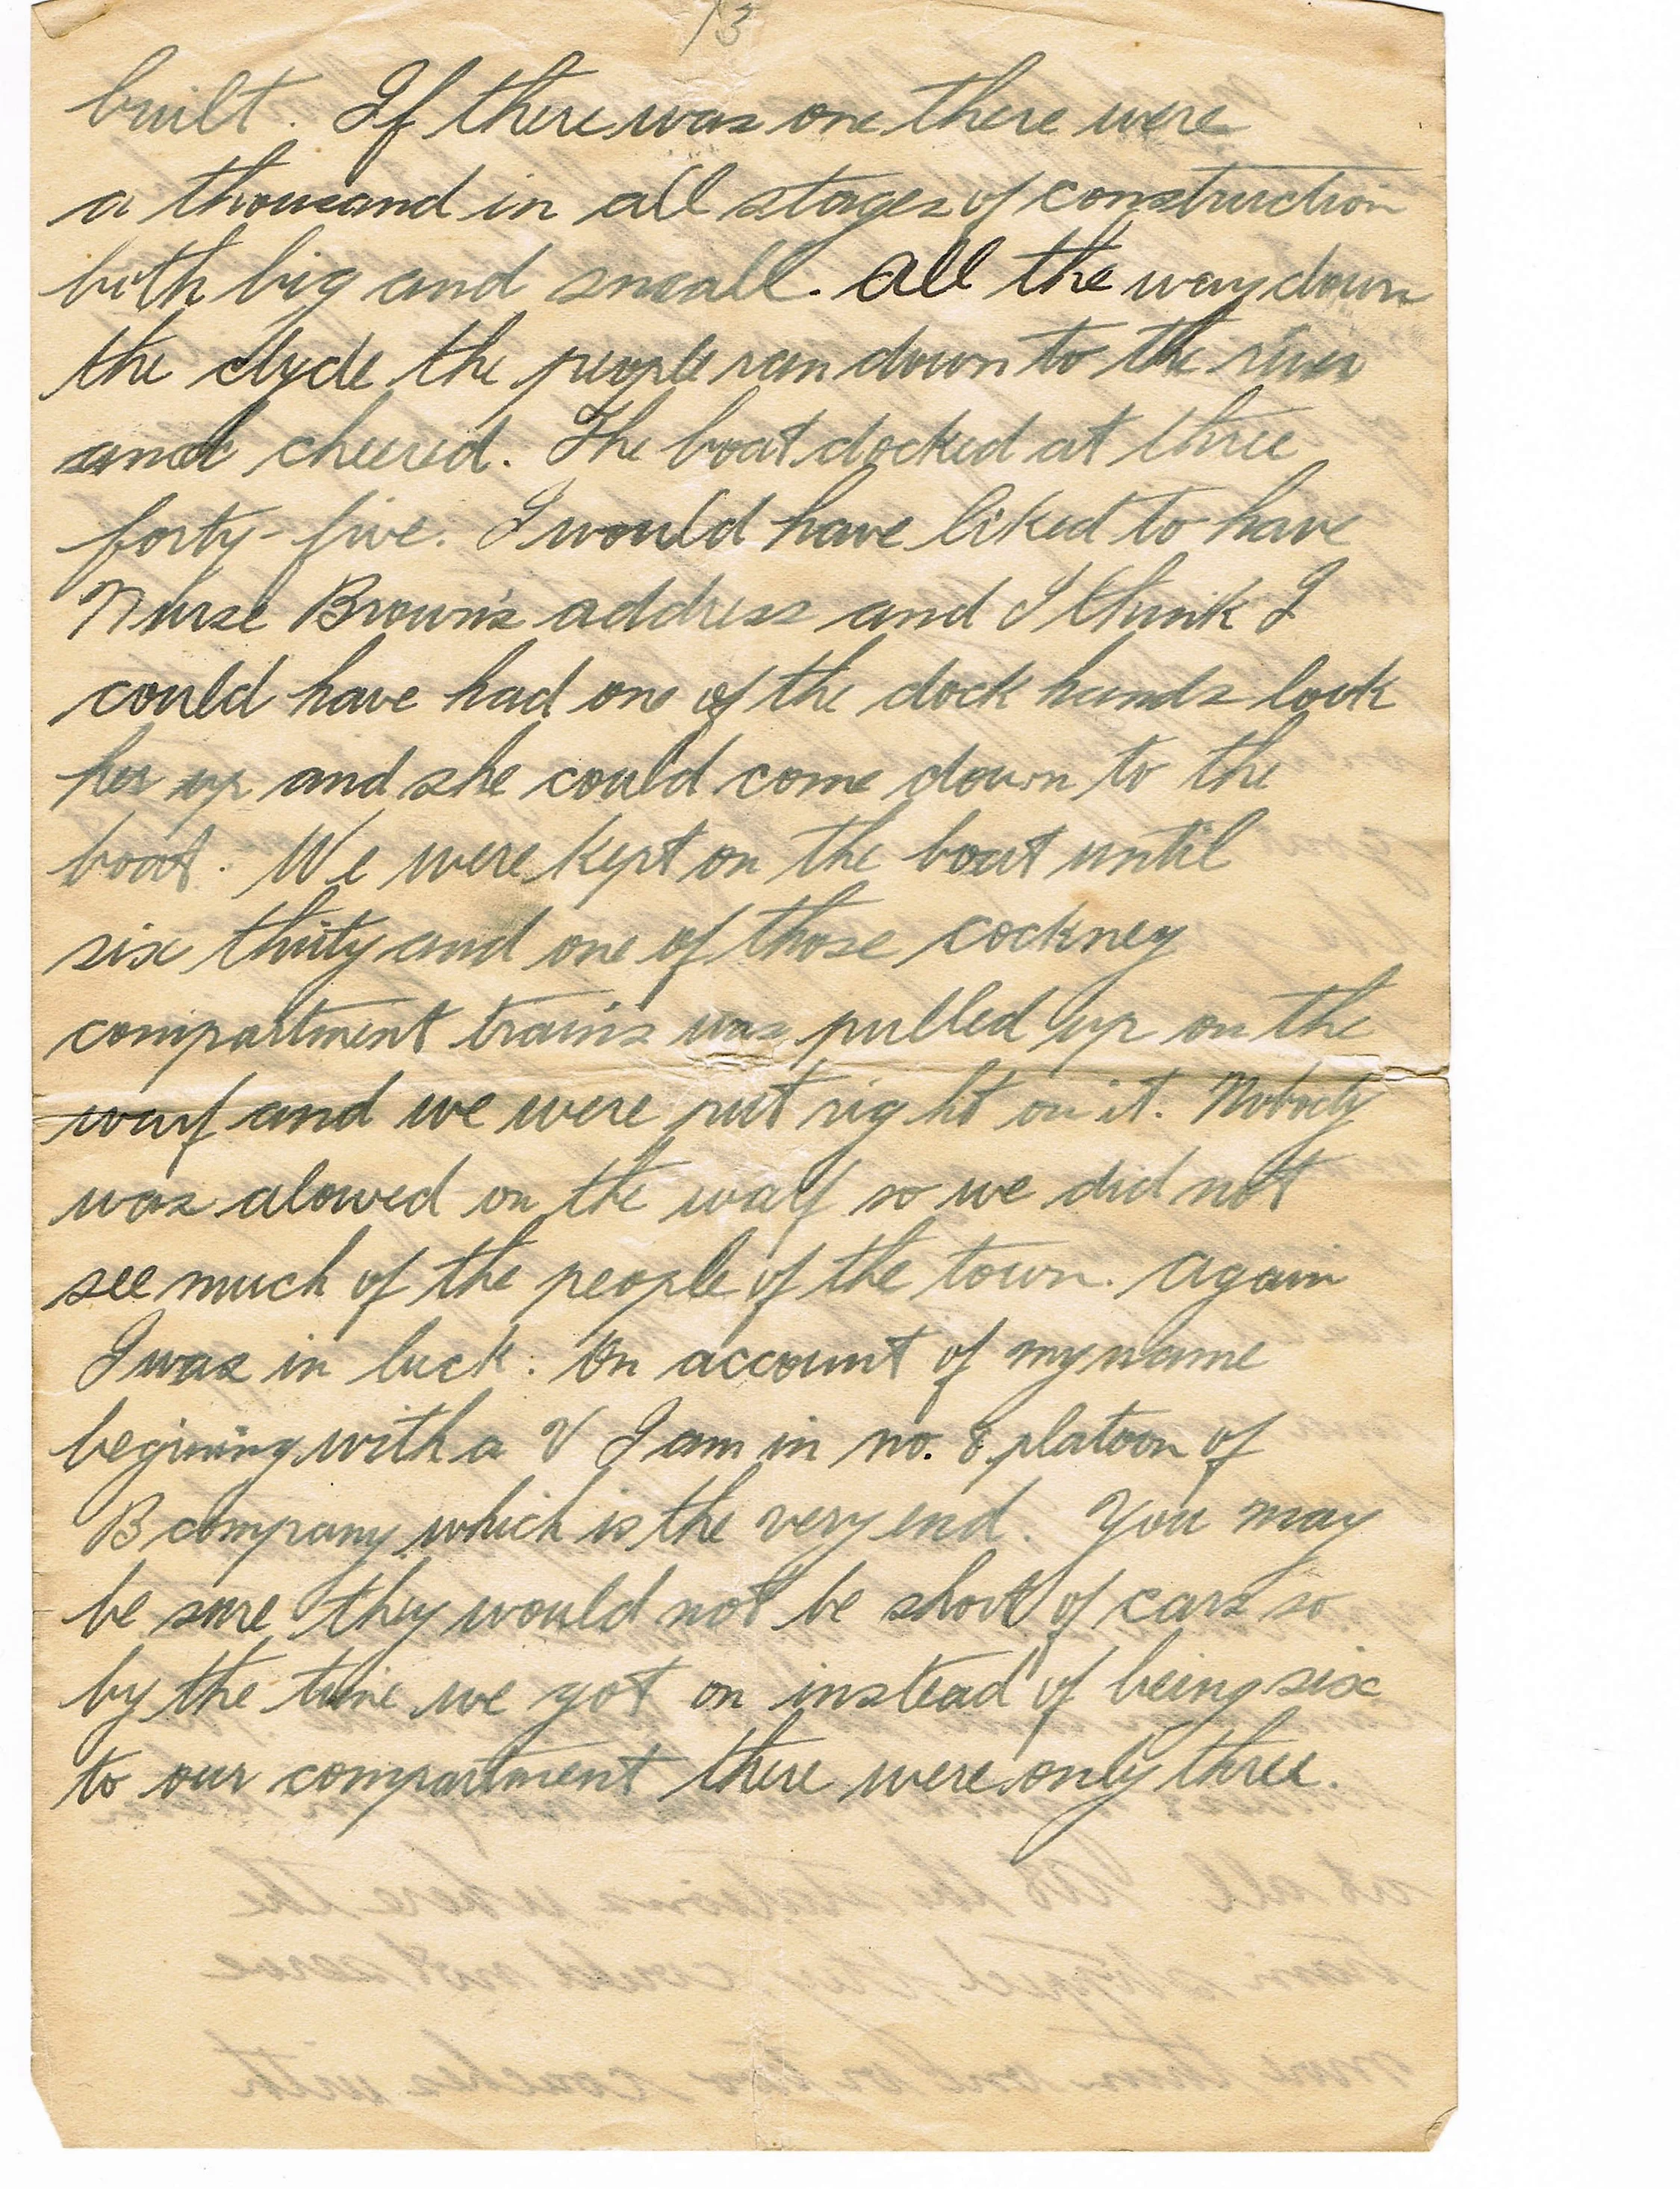 13
built. If there was one there were
a thousand in all stages of construction
both big and small. All the way down
the clyde the people ran down to the river
and cheered. The boat docked at three
forty-five. I would have liked to have
Nurse Brown's address and I think I
could have had one of the dock hands look
her up and she could come down to the
boat. We were kept on the boat until
six thirty and one of those cockney
compartment trains was pulled up on the
warf and we were put right on it. Nobody
was alowed on the warf so we did not
see much of the people of the town. Again
I was in luck. On account of my name
begining with a V I am in no. 8 platoon of
B company which is the very end. You may
be sure they would not be short of cars so
by the time we got on instead of being six
to our compartment there were only three.